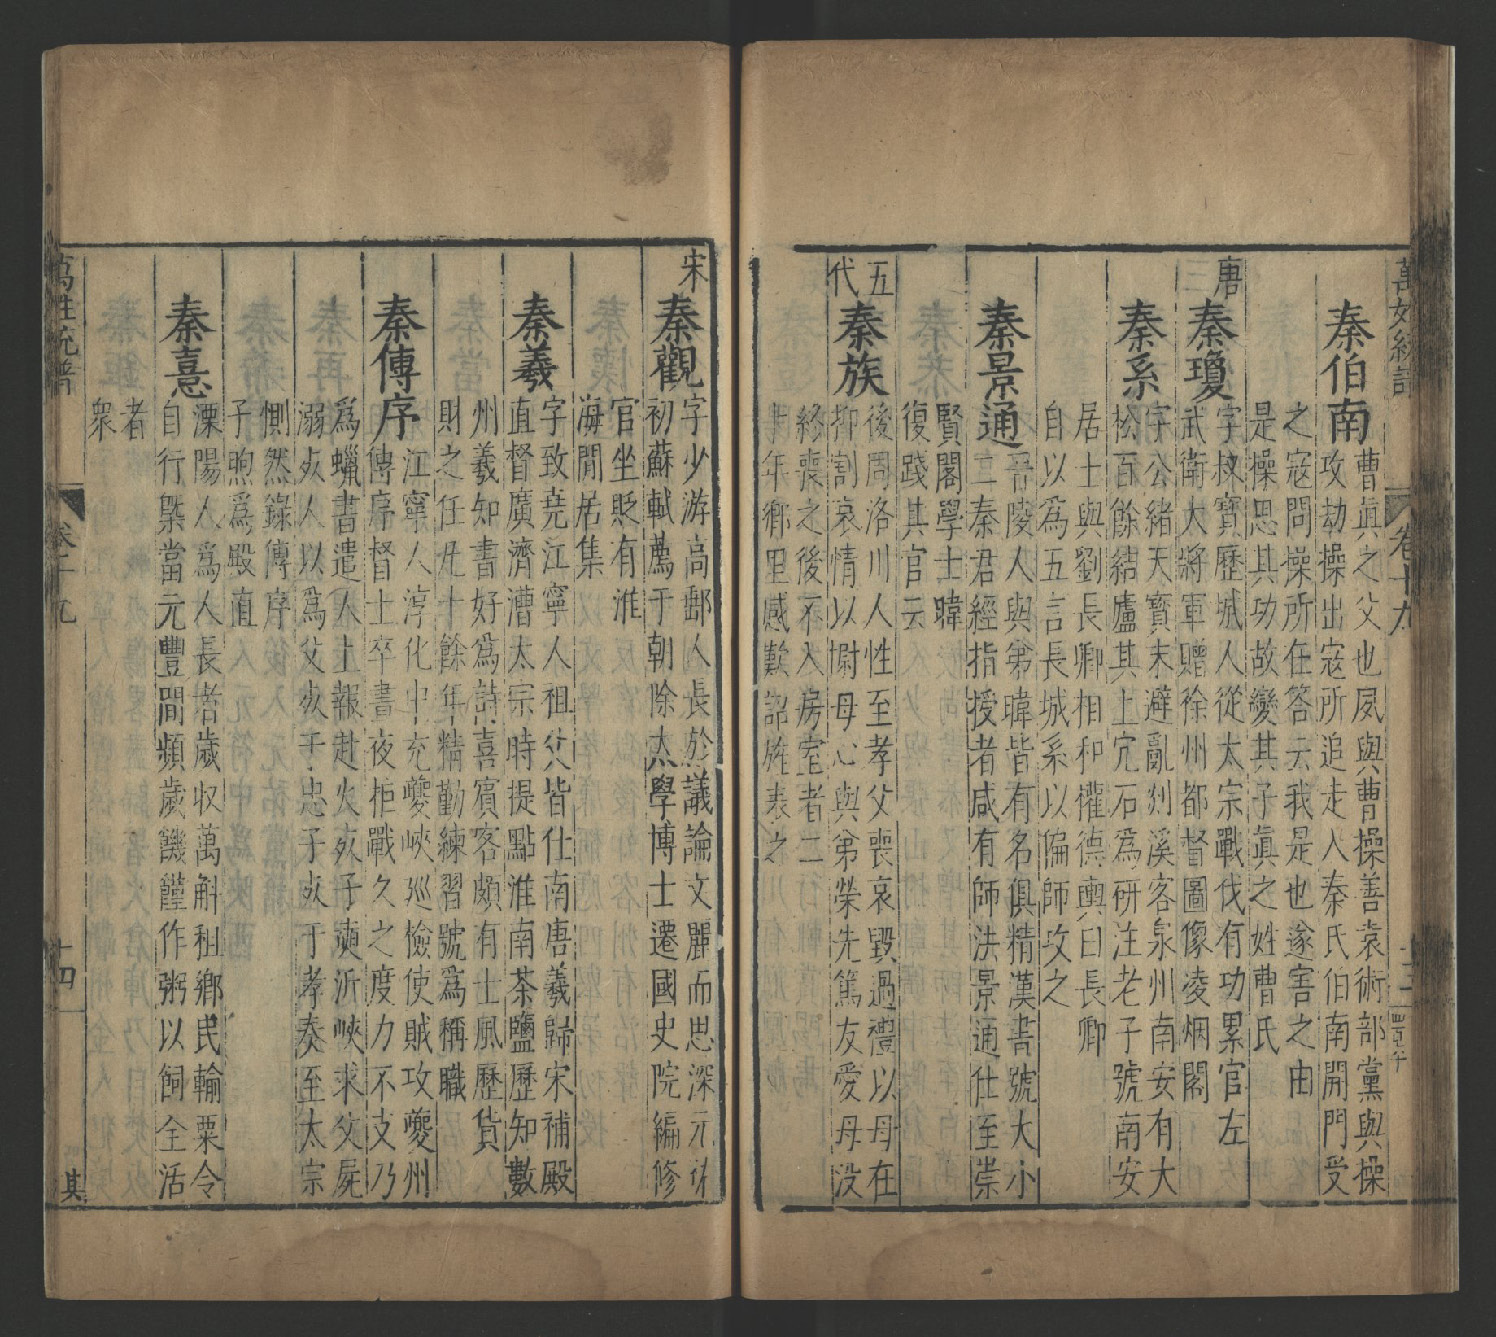 秦伯南
曹眞之父也夙與曹操善袁術部黨與操
攻劫操出寇所追走入秦氏伯南開門受
之寇問操所在答云我是也遂害之由
是操思其功故變其子眞之姓曹氏
唐
秦瓊
字叔寶歷城人從太宗戰伐有功累官左
武衛大將軍贈徐州都督圖像凌烟閣
秦系
字公緒天寶末避亂剡溪客泉州南安有大
松百餘結廬其上穴石爲研注老子號南安
居士與劉長卿相和權德輿曰長卿
自以爲五言長城系以偏師攻之
秦景通
晉陵人與弟暐皆有名俱精漢書號大小
二秦君經指授者咸有師法景通仕至崇
賢閣學士暐
復踐其官云
五代
秦族
後周洛川人性至孝父喪哀毀過禮以母在
抑割哀情以慰母心與弟榮先篤友愛母没
終喪之後不入房室者二
十年鄉里感歎詔旌表之
宋
秦觀
字少游高郵人長於議論文麗而思深元祐
初蘇軾薦于朝除太學博士遷國史院編修
官坐貶有淮
海閒居集
秦羲
字致堯江寧人祖父皆仕南唐羲歸宋補殿
直督廣濟漕太宗時提點淮南茶鹽歷知數
州羲知書好爲詩喜賓客頗有士風歷貨
財之任凡十餘年精勤練習號爲稱職
秦傳序
江寧人淳化中充夔峽巡檢使賊攻夔州
傳序督士卒晝夜拒戰久之度力不支乃
爲蠟書遣人上報赴火死子奭泝峽求父屍
溺死人以爲父死于忠子死于孝奏至太宗
惻然錄傳序
子煦爲殿直
秦憙
溧陽人爲人長者歲收萬斛租鄉民輸粟令
自行槩當元豐間頻歲饑饉作粥以飼全活
者
衆
萬姓統譜
卷十九
十四
其